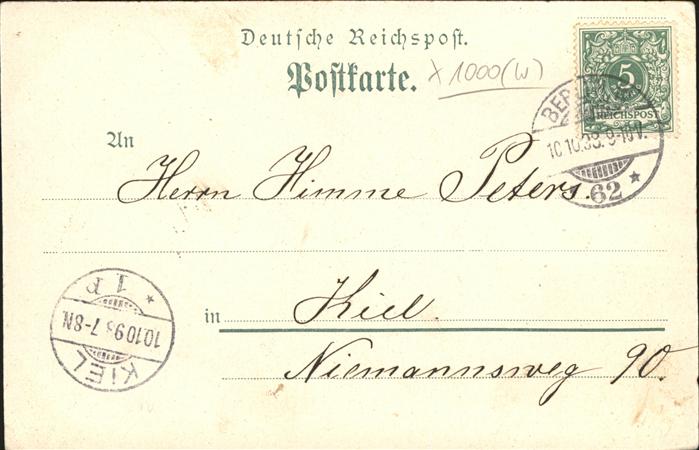 Deutsche Reichspost.
Postkarte.
x 1000 (W)
5
REICHSPOST
10.10.98. 9-10V.
62
An
Herrn Himme Peters.
in Kiel.
Niemannsweg 90.
1 P
10.10 98 7-8N.
KIEL